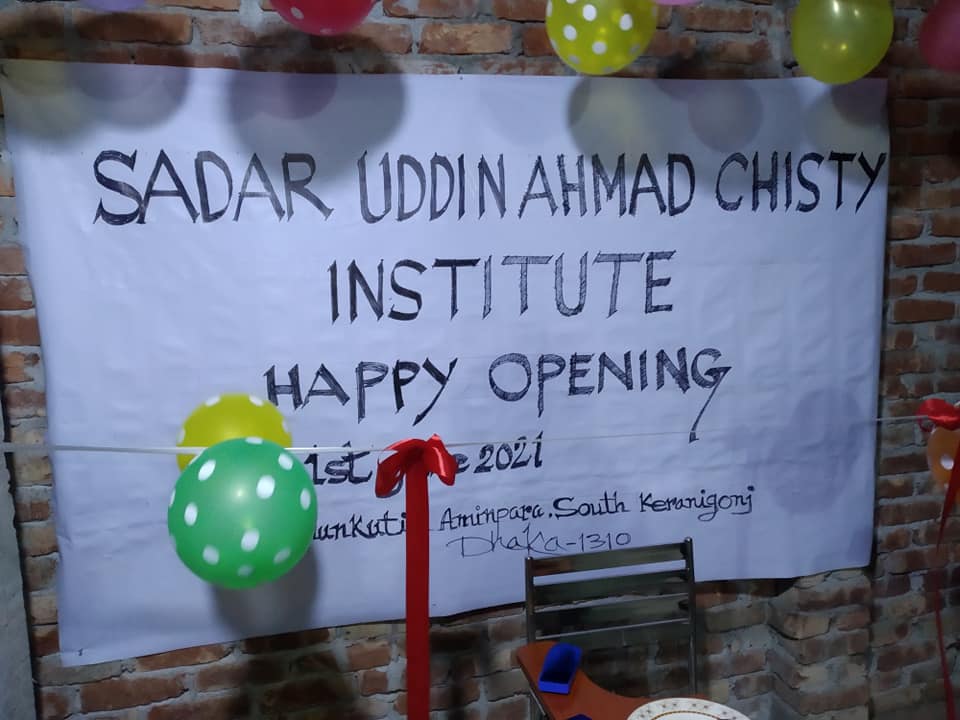 SADAR UDDIN AHMAD CHISTY
INSTITUTE
HAPPY OPENING
1st 2021
Aminpara, South Keranigonj
Dhaka-1310